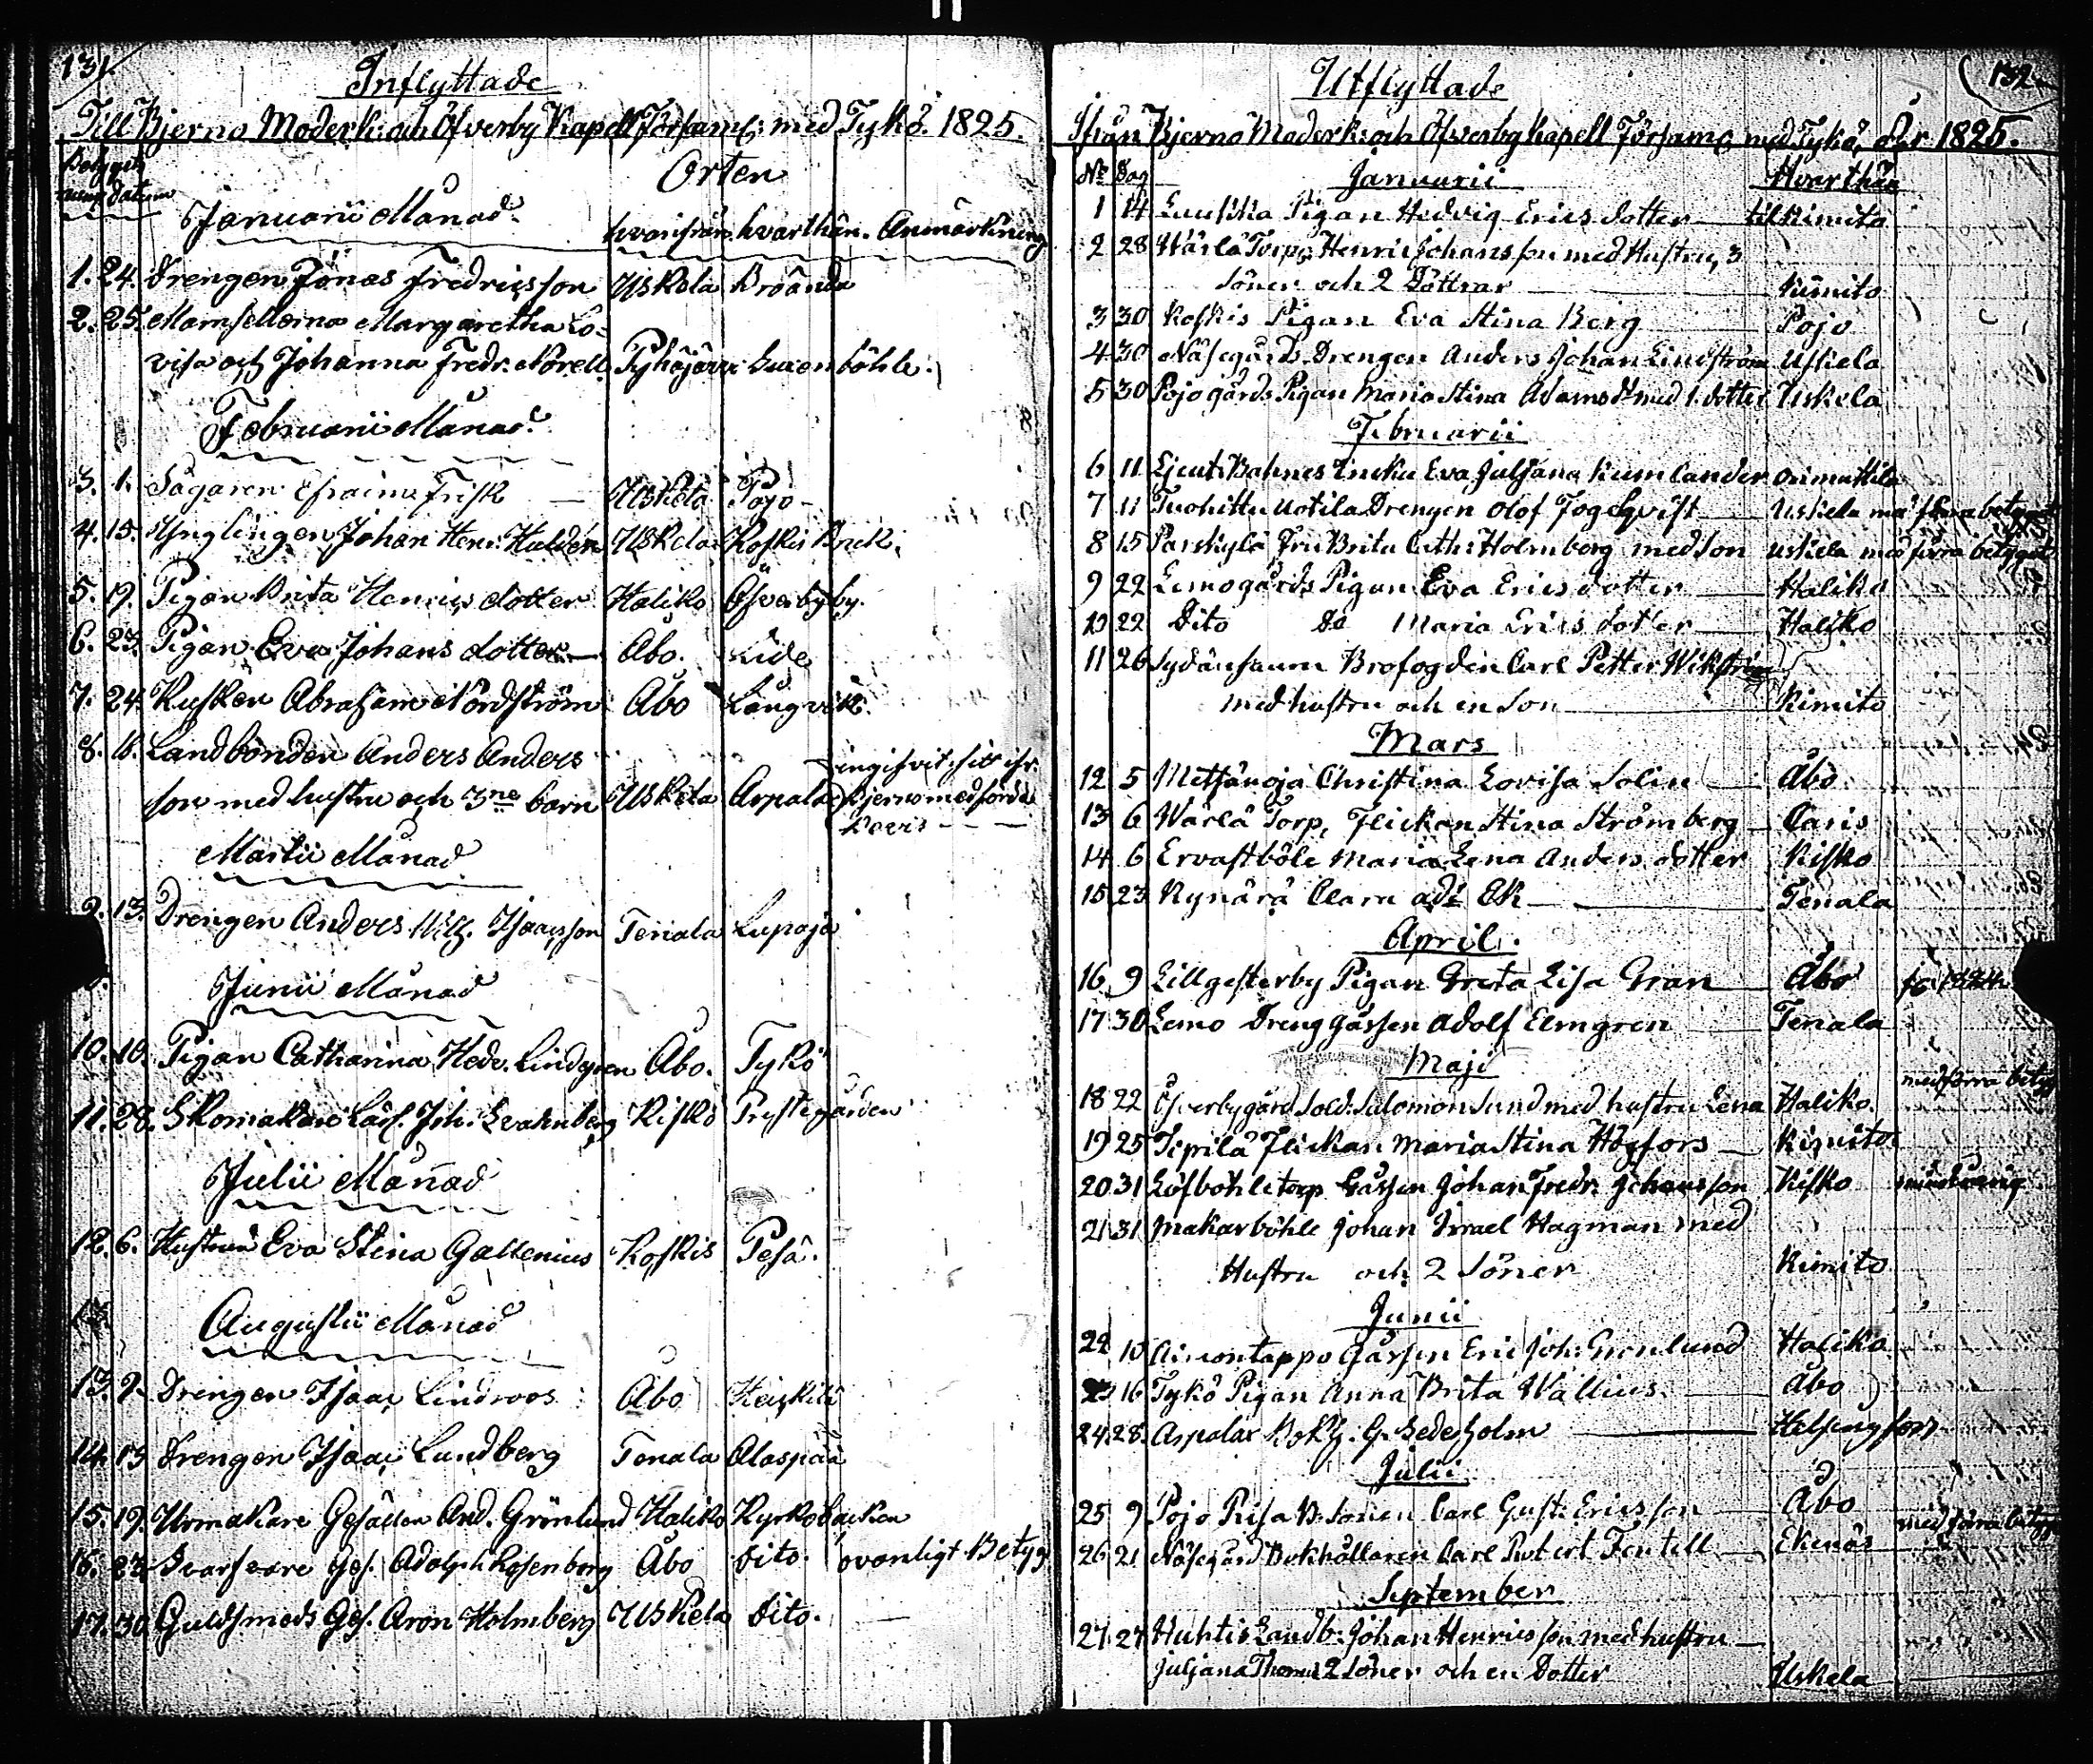 131
Inflyttade
Till Bjerno Moderk: och Öfverby Kapell Församl: med Tykö 1825.
Betygets datum
Orten
Januarii Månad
hvarifrån hvarthän. Anmärkning
1. 24. Drengen Jonas Fredricsson Uskela Broända
2. 25. Mamsellerna Margaretha Lo-
visa och Johanna Fredr. Norell. Pyhäjärvi böhle.
Februarii Månad
3. 1. Sågaren Efraim Frisk — Uskela Pojo —
4. 15. Ynglingen Johan Henr: Huldén Uskela Koskis Bruk.
5. 19. Pigan Brita Henrics dotter Haliko Öfverby by.
6. 23. Pigan Eva Johans dotter — Åbo. Lide
7. 24. Kusken Abraham Nordström Åbo Långvik.
8. Landbonden Anders Anders
son med hustru och 3ne barn Uskela Arpala Bjerno med
Martii Månad
9. 13. Drengen Anders Wilh. Isaacsson Tenala Lupaja
Junii Månad
10. 10. Pigan Catharina Hedv. Lindgren Åbo. Tykö
11. 28. Skomakare Lärl. Joh. Kisko Prestegården
Julii Månad
12. 6. Hustrun Eva Stina Gallenius Koskis Pesä.
13.
Augustii Månad
13. 9. Drengen Isaac Lindroos Åbo
14. 13 Drengen Isaac Lundberg Tenala Alaspää
15. 19. Urmakare Gesällen And. Grönlund Haliko Kyrkobacken
16. 23 Svarfvare Ges. Adolph Rosenborg Åbo dito. ovanligt Betyg
17. 30 Guldsmeds Ges. Aron Holmberg Uskela dito.
132.
Utflyttade
Ifrån Bjernö Moderk: och Öfverby Kapell Församl. med Tykö, År 1825.
No Dag Januarii Hvarthän
1 14 Pigan Hedvig Erics dotter — til Kimito
2 28 Wärlä Torp. Henric Johansson med Hustru, 3
Söner och 2 Döttrar — Kimito
3 30 Koskis Pigan Eva Stina Berg Pojo
4 30 Näsegårds Drengen Anders Johan Lindström Uskela
5 30 Pojogårds Pigan Maria Stina Adams dr med 1. dotter Uskela
Februarii
6 11 Enka Eva Juljana Kumlander Orimattila
7 11 Tuohittu Uotila Drengen Olof Fogelqvist — Uskela med förra betyget
8 15 Fru Brita Cath: Holmberg med son Uskela med förra betyget
9 22 Lemogårds Pigan Eva Erics dotter — Haliko
10 22 Dito Do Maria Erics dotter — Haliko
11 26 Brofogden Carl Petter Wikström
med hustru och en son — Kimito
Mars
12 5 Metsänoja Christina Lovisa Solin — Åbo
13 6 Wärlä Torp, Flickan Stina Strömberg — Caris
14 6 Ervastböle Maria Lena Anders dotter Kisko
15 23 Kynärä Clara Ek — Tenala
April.
16 9 Lillgesterby Pigan Greta Lisa Gran — Åbo
17 30 Lemo Drenggåssen Adolf Elmgren — Tenala
Maji
18 22 Öfverbygård Sold: Salomon Sund med hustru Lena Haliko. med förra betyg
19 25 Tipilä Flickan Maria Stina Högfors — Kimito
20 31 Löfböhle torp Gåssen Johan Fredr. Johansson Kisko
21 31 Makarböhle Johan Israel Hagman med
Hustru och 2 Söner Kimito
Junii
22 10 Aimontappo Gåssen Eric Joh: Grönlund Haliko
23 16 Tykö Pigan Anna Brita Wallius — Åbo
24 28. Arpalax Bokh: G. Sedeholm — Helsingfors
Julii
25 9 Pojo B. Sonen Carl Gust: Ericsson — Åbo
26 21 Näsegård Bokhållaren Carl Robert Forstell — Ekenäs med förra betyg
September
27 27 Huhtis Landb: Johan Henricsson med hustru —
Juljana Thomas 2 Söner och en Dotter Uskela